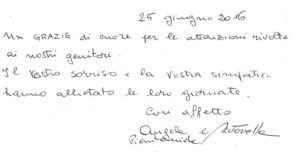 25 giugno 2016
Un GRAZIE di cuore per le attenzioni rivolte
ai nostri genitori.
Il Vostro sorriso e la Vostra simpatia
hanno allietato le loro giornate.
Con affetto
Angela e Antonella